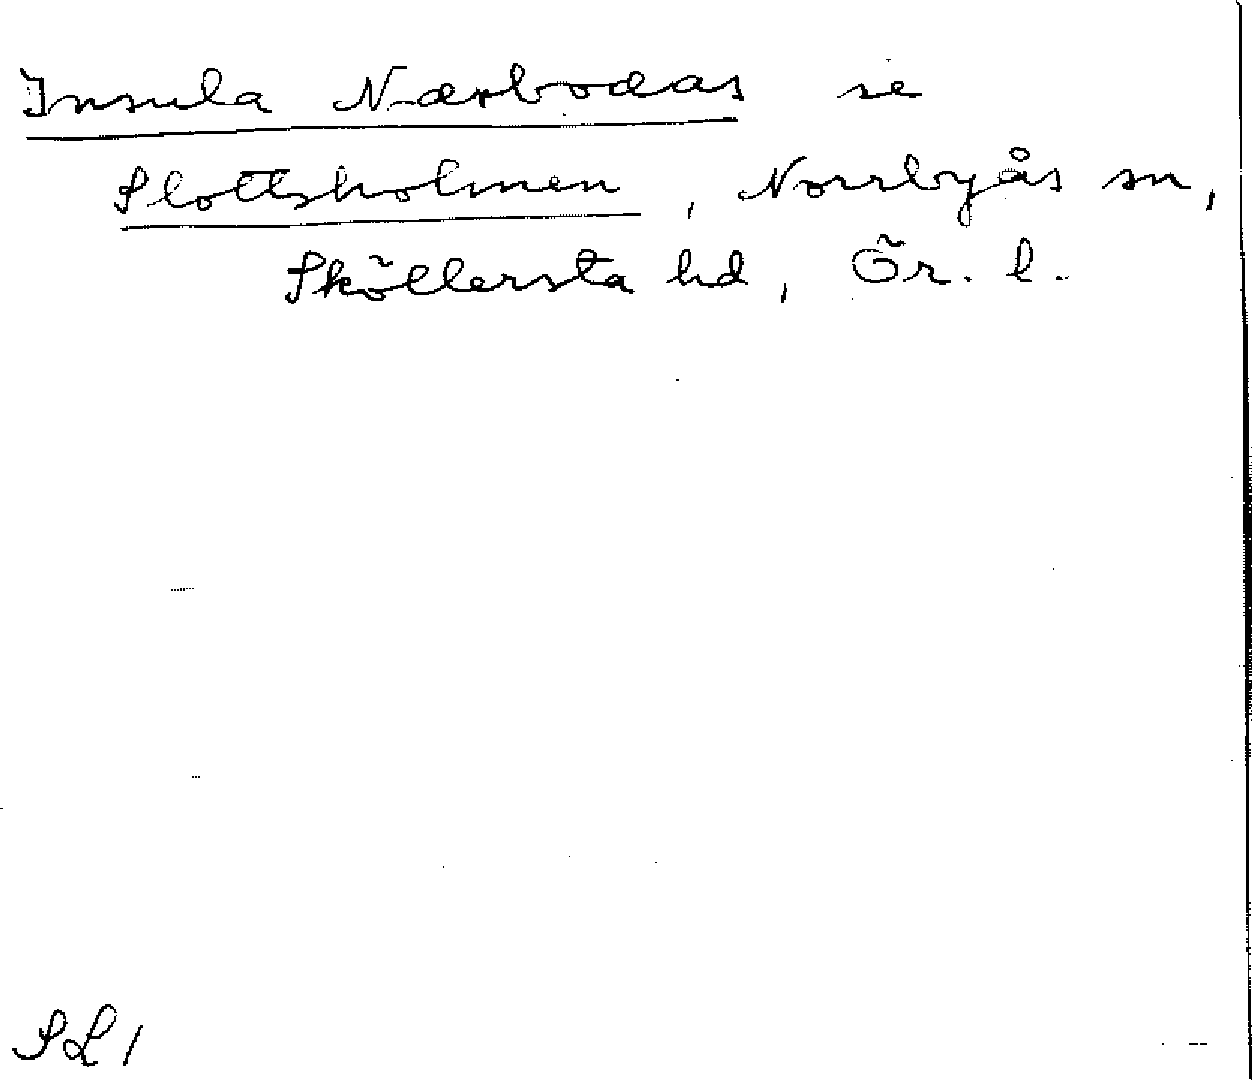 Insula Nærbodæas se
Slottsholmen, Norrbyås sn,
Sköllersta hd, Ör. l.
SL 1